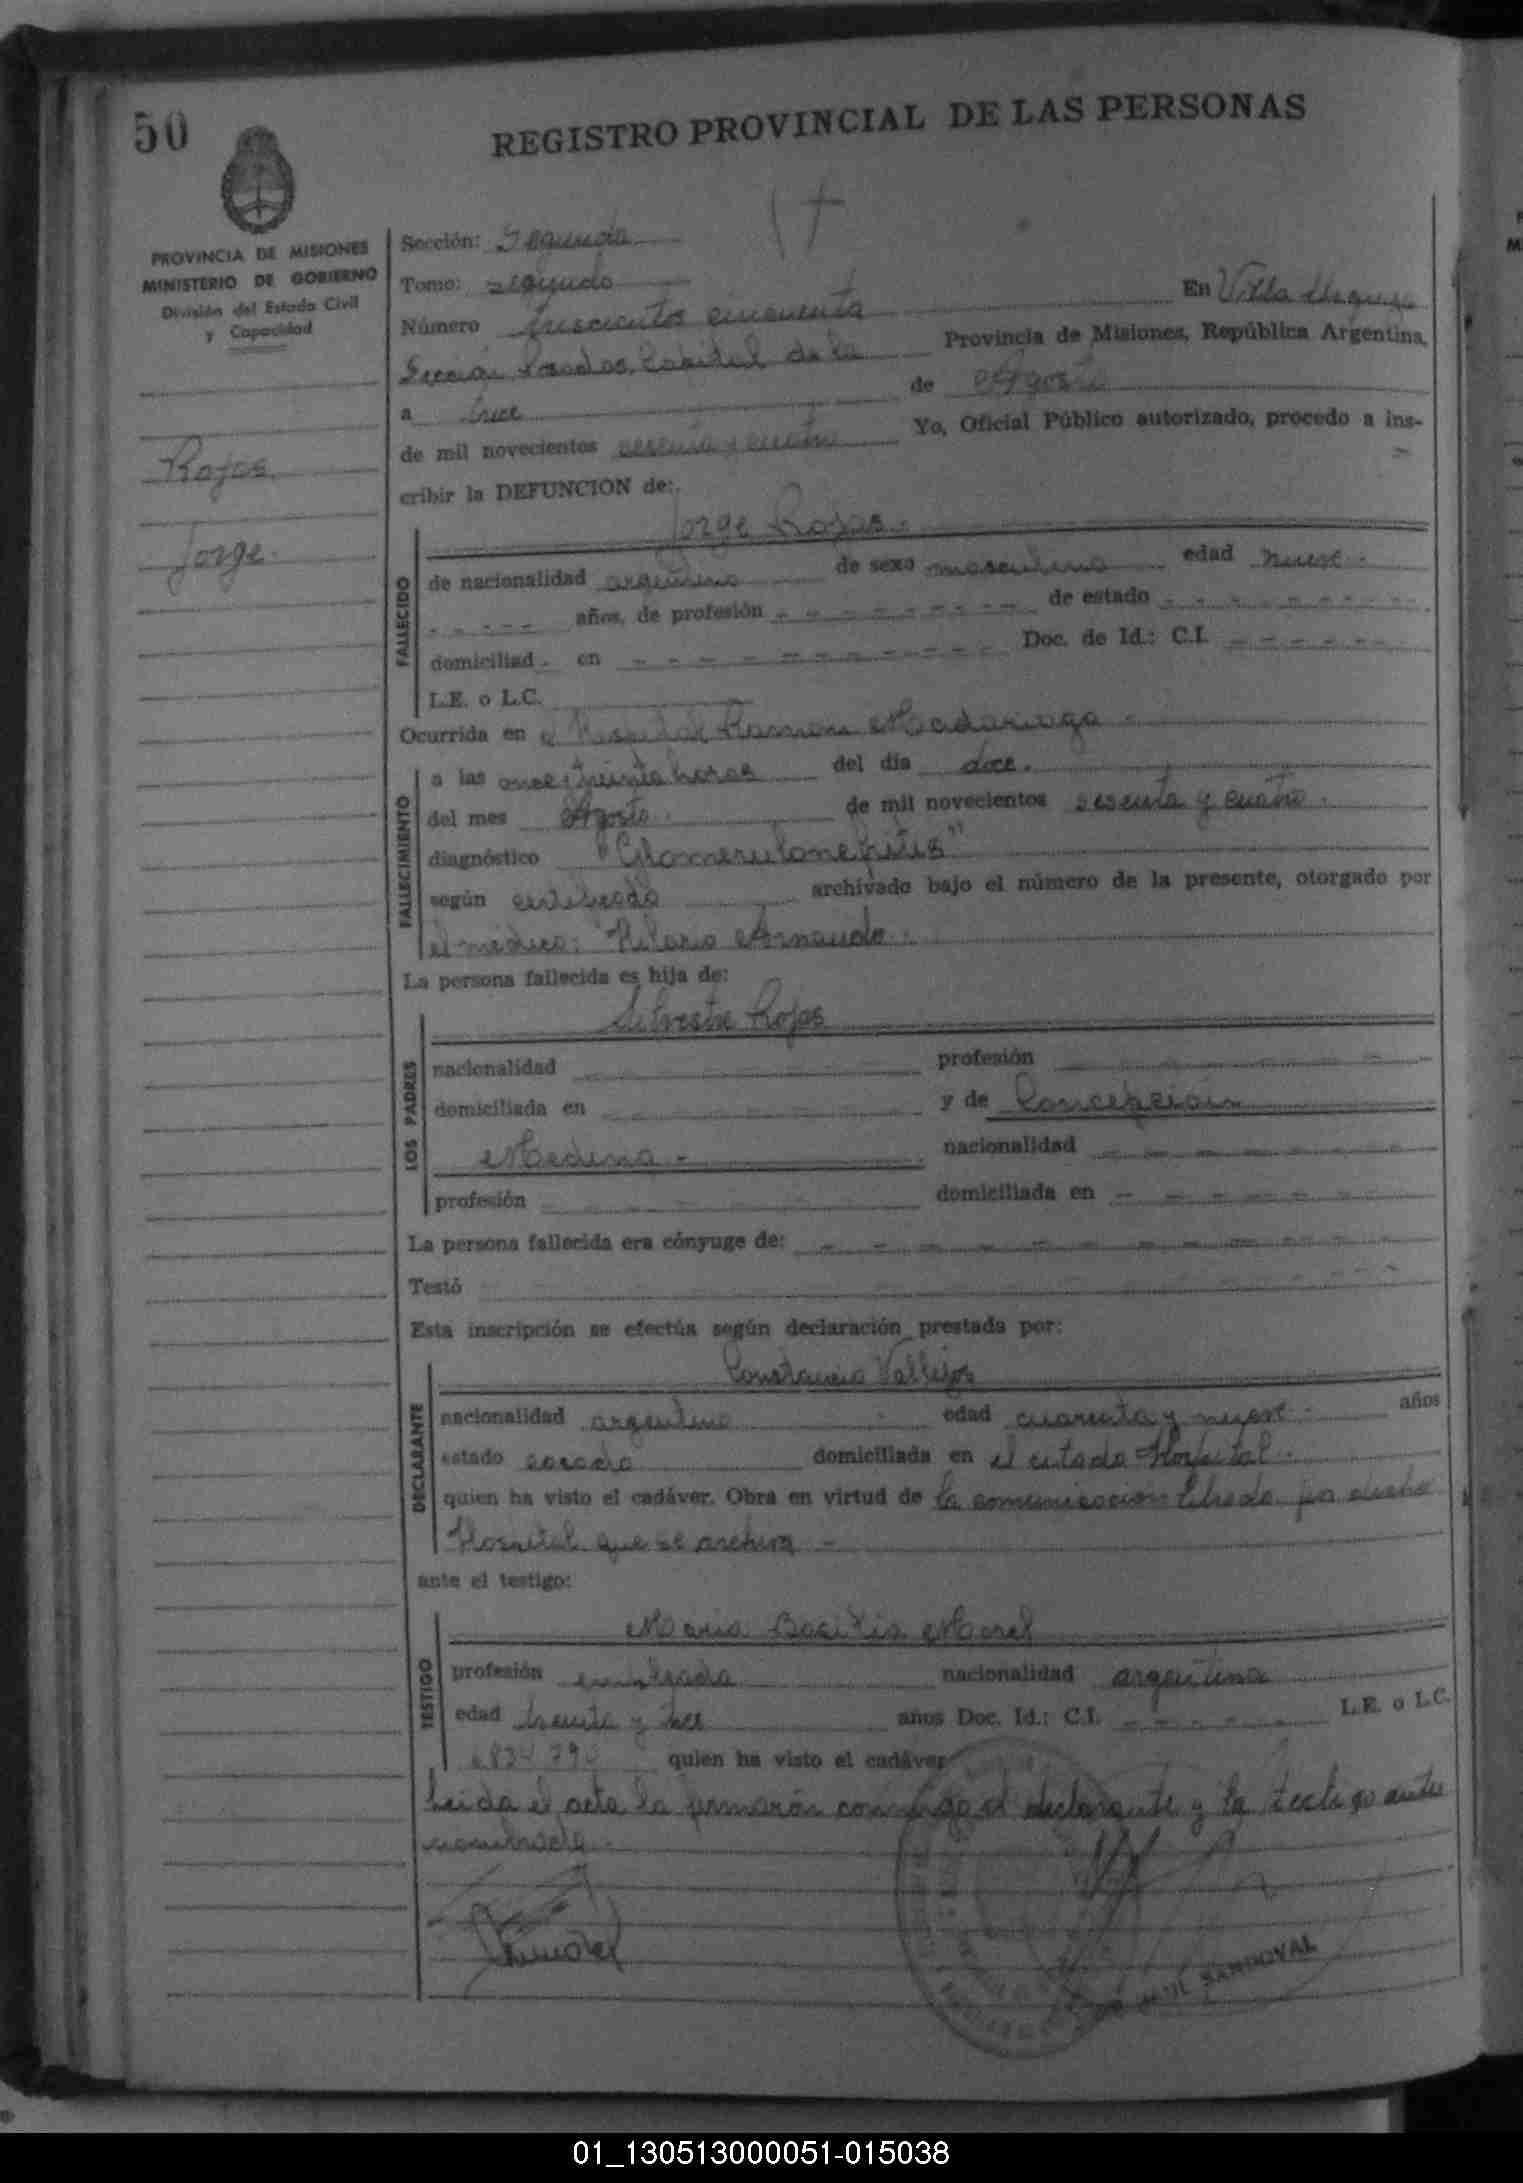 50
REGISTRO PROVINCIAL DE LAS PERSONAS
PROVINCIA DE MISIONES
MINISTERIO DE GOBIERNO
División del Estado Civil
y Capacidad
Rojas
Jorge.
Sección: Segunda
Tomo: segundo
Número trescientos cincuenta En Villa Urquiza
Sección Posadas, Capital de la Provincia de Misiones, República Argentina,
a trece de Agosto
de mil novecientos sesenta y cuatro Yo, Oficial Público autorizado, procedo a ins-
cribir la DEFUNCION de:
Jorge Rojas.
FALLECIDO
de nacionalidad argentino de sexo masculino edad nueve
años, de profesión - - - - - - - - de estado - - - - - - - -
domiciliad en - - - - - - - - - - Doc. de Id.: C.I. - - - - - -
L.E. o L.C.
Ocurrida en el Hospital Ramon Madariaga -
FALLECIMIENTO
a las once y treinta horas del día doce.
del mes Agosto. de mil novecientos sesenta y cuatro.
diagnóstico "Glomerulonefritis"
según certificado archivado bajo el número de la presente, otorgado por
el médico: Hilario Arnaudo.
La persona fallecida es hija de:
Silvestre Rojas
LOS PADRES
nacionalidad - - - - - - profesión - - - - - -
domiciliada en - - - - - - y de Concepción
Medina - nacionalidad - - - - - -
profesión - - - - - - domiciliada en - - - - - -
La persona fallecida era cónyuge de: - - - - - - - - - - -
Testó
Esta inscripción se efectúa según declaración prestada por:
Constancio Vallejos
DECLARANTE
nacionalidad argentino edad cuarenta y nueve - años
estado casado domiciliada en el citado Hospital.
quien ha visto el cadáver. Obra en virtud de la comunicacion librada por dicho
Hospital que se archiva -
ante el testigo:
Maria Basilia Morel
TESTIGO
profesión empleada nacionalidad argentina
edad treinta y trece años Doc. Id.: C.I. - - - - - - L.E. o L.C.
quien ha visto el cadáver
Leida el acta la firmarón conmigo el declarante y la testigo antes
nombrada.
SANDOVAL
01_130513000051-015038